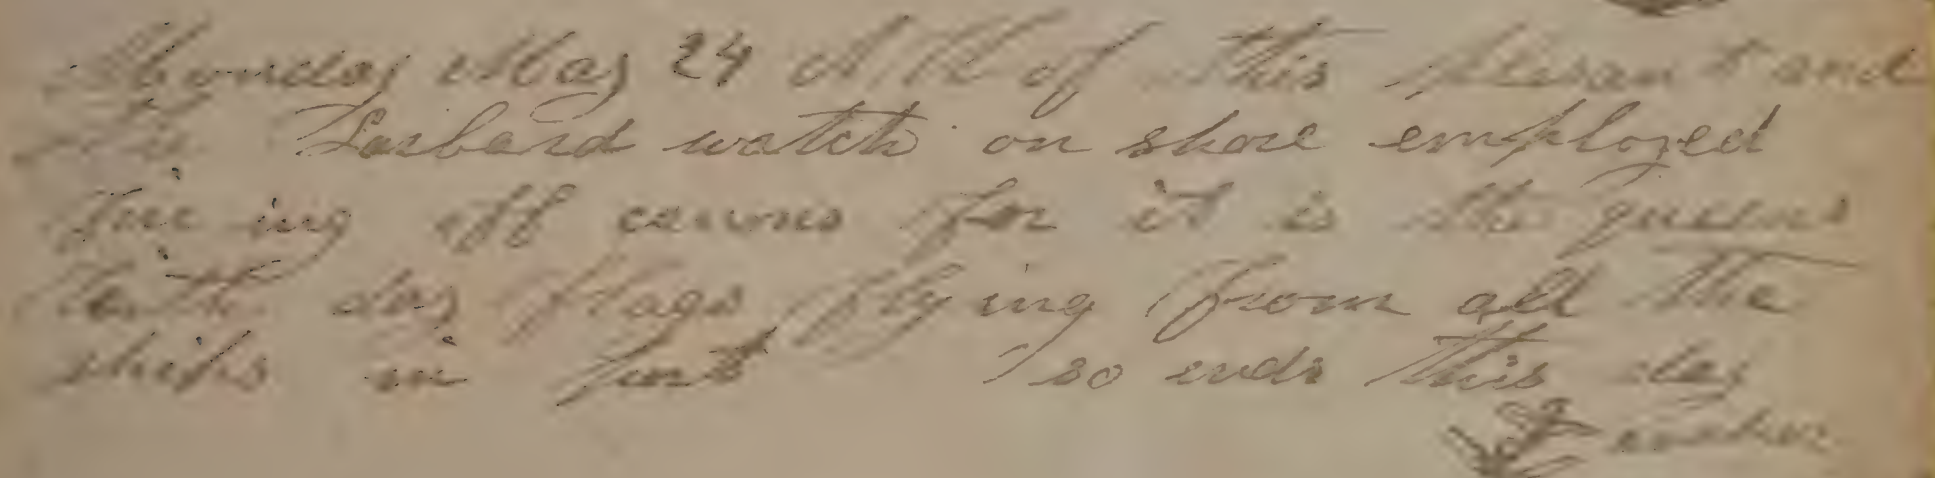 Monday May 24 All of this plesant and
the Larbard watch on shore employed
fire ing off cannons for it is the queens
berth day flags flying from all the
ships in port so ends this day
anchor